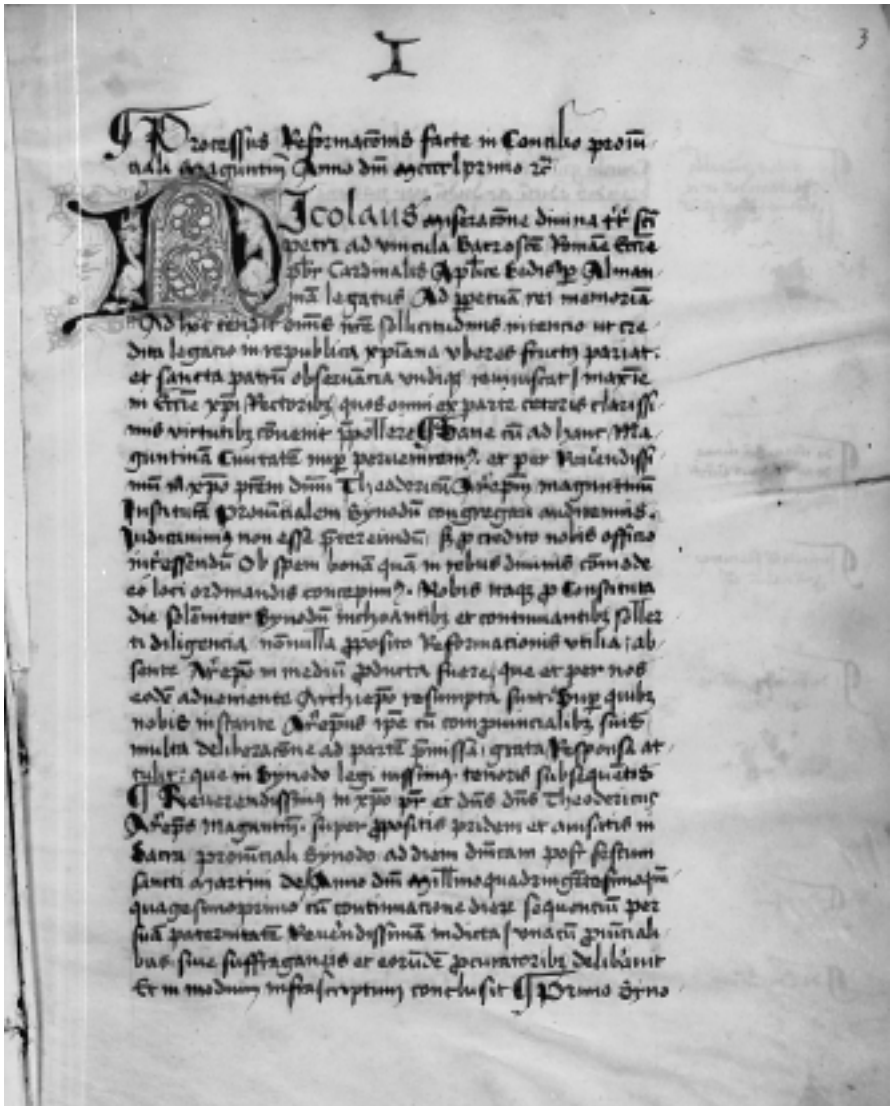 I
3
¶ Processus Reformacōnis facte in Concilio prouī
ciali Maguntiñ Anno dnī Mcccclprimo ⁊c̄
Nicolaus miseracōne diuina tt̄ sc̄ti
petri ad vincula Sacrosc̄te Romāe Eccīe
pb̄r Cardinalis Aplīce Sedis ꝑ Alman
niā legatus Ad ꝑpetuā rei memoriā
Ad hoc tendit om̄is nr̄e sollicitudinis intencio ut cre
dita legacio in republica xp̄iana vberes fructꝰ pariat.
et sancta patrū obseruācia vndiqꝫ reuiuiscat / maxīe
in Eccīe xp̄i Rectoribꝫ quos omni ex parte ceteris clarissi
mis virtutibꝫ cōuenit p̄pollere ¶ Sane cū ad hanc Ma
guntinā Ciuitatē nuꝑ peruenīremꝰ. et per Reuerendissi
mū in xp̄o pr̄em dnm̄ Theodericū Ar̄epm̄ maguntinū
Institutā Prouīcialem Synodū congregari audiremus.
Iudicauimus non esse p̄tereundū. sꝫ ꝓ credito nobis officio
int̄essendū Ob spem bonā quā in rebus diuinis cōmode
eo loci ordinandis concepimꝰ. Nobis itaqꝫ ꝓ Constituta
die solēniter Synodū inchoātibꝫ et continuantibꝫ soller
ti diligencia nōnulla ꝓposito Reformationis vtilia / ab
sente Ar̄epo in mediū ꝓducta fuere, que et per nos
eodē adueniente Archiepō resumpta sunt. Suꝑ quibꝫ
nobis instante Ar̄epūs ip̄e cū comprouincialibꝫ suis
multa deliberacōne ad partē p̄missa. grata Responsa at
tulit. que in Synodo legi iussimꝰ. tenoris subsequētis
¶ Reuerendissimꝰ in xp̄o pr̄ et dn̄s dn̄s Theodericus
Ar̄eps̄ Magūtinꝰ. super ꝓpositis pridem et auisatis in
Sacra prouīciali Synodo ad diem dn̄icam post festum
sancti Martini de Anno dnī Mill̄mo quadringētesimo qui
quagesimoprimo cū continuacione dierꝝ sequenciū per
suā paternitatē Reuerēdissimam indicta / vnacū ꝓuīciali
bus. siue suffraganeis et eorūdē ꝓcuratoribꝫ delibāuit
Et in modum infrascriptum conclusit ¶ Primo Syno